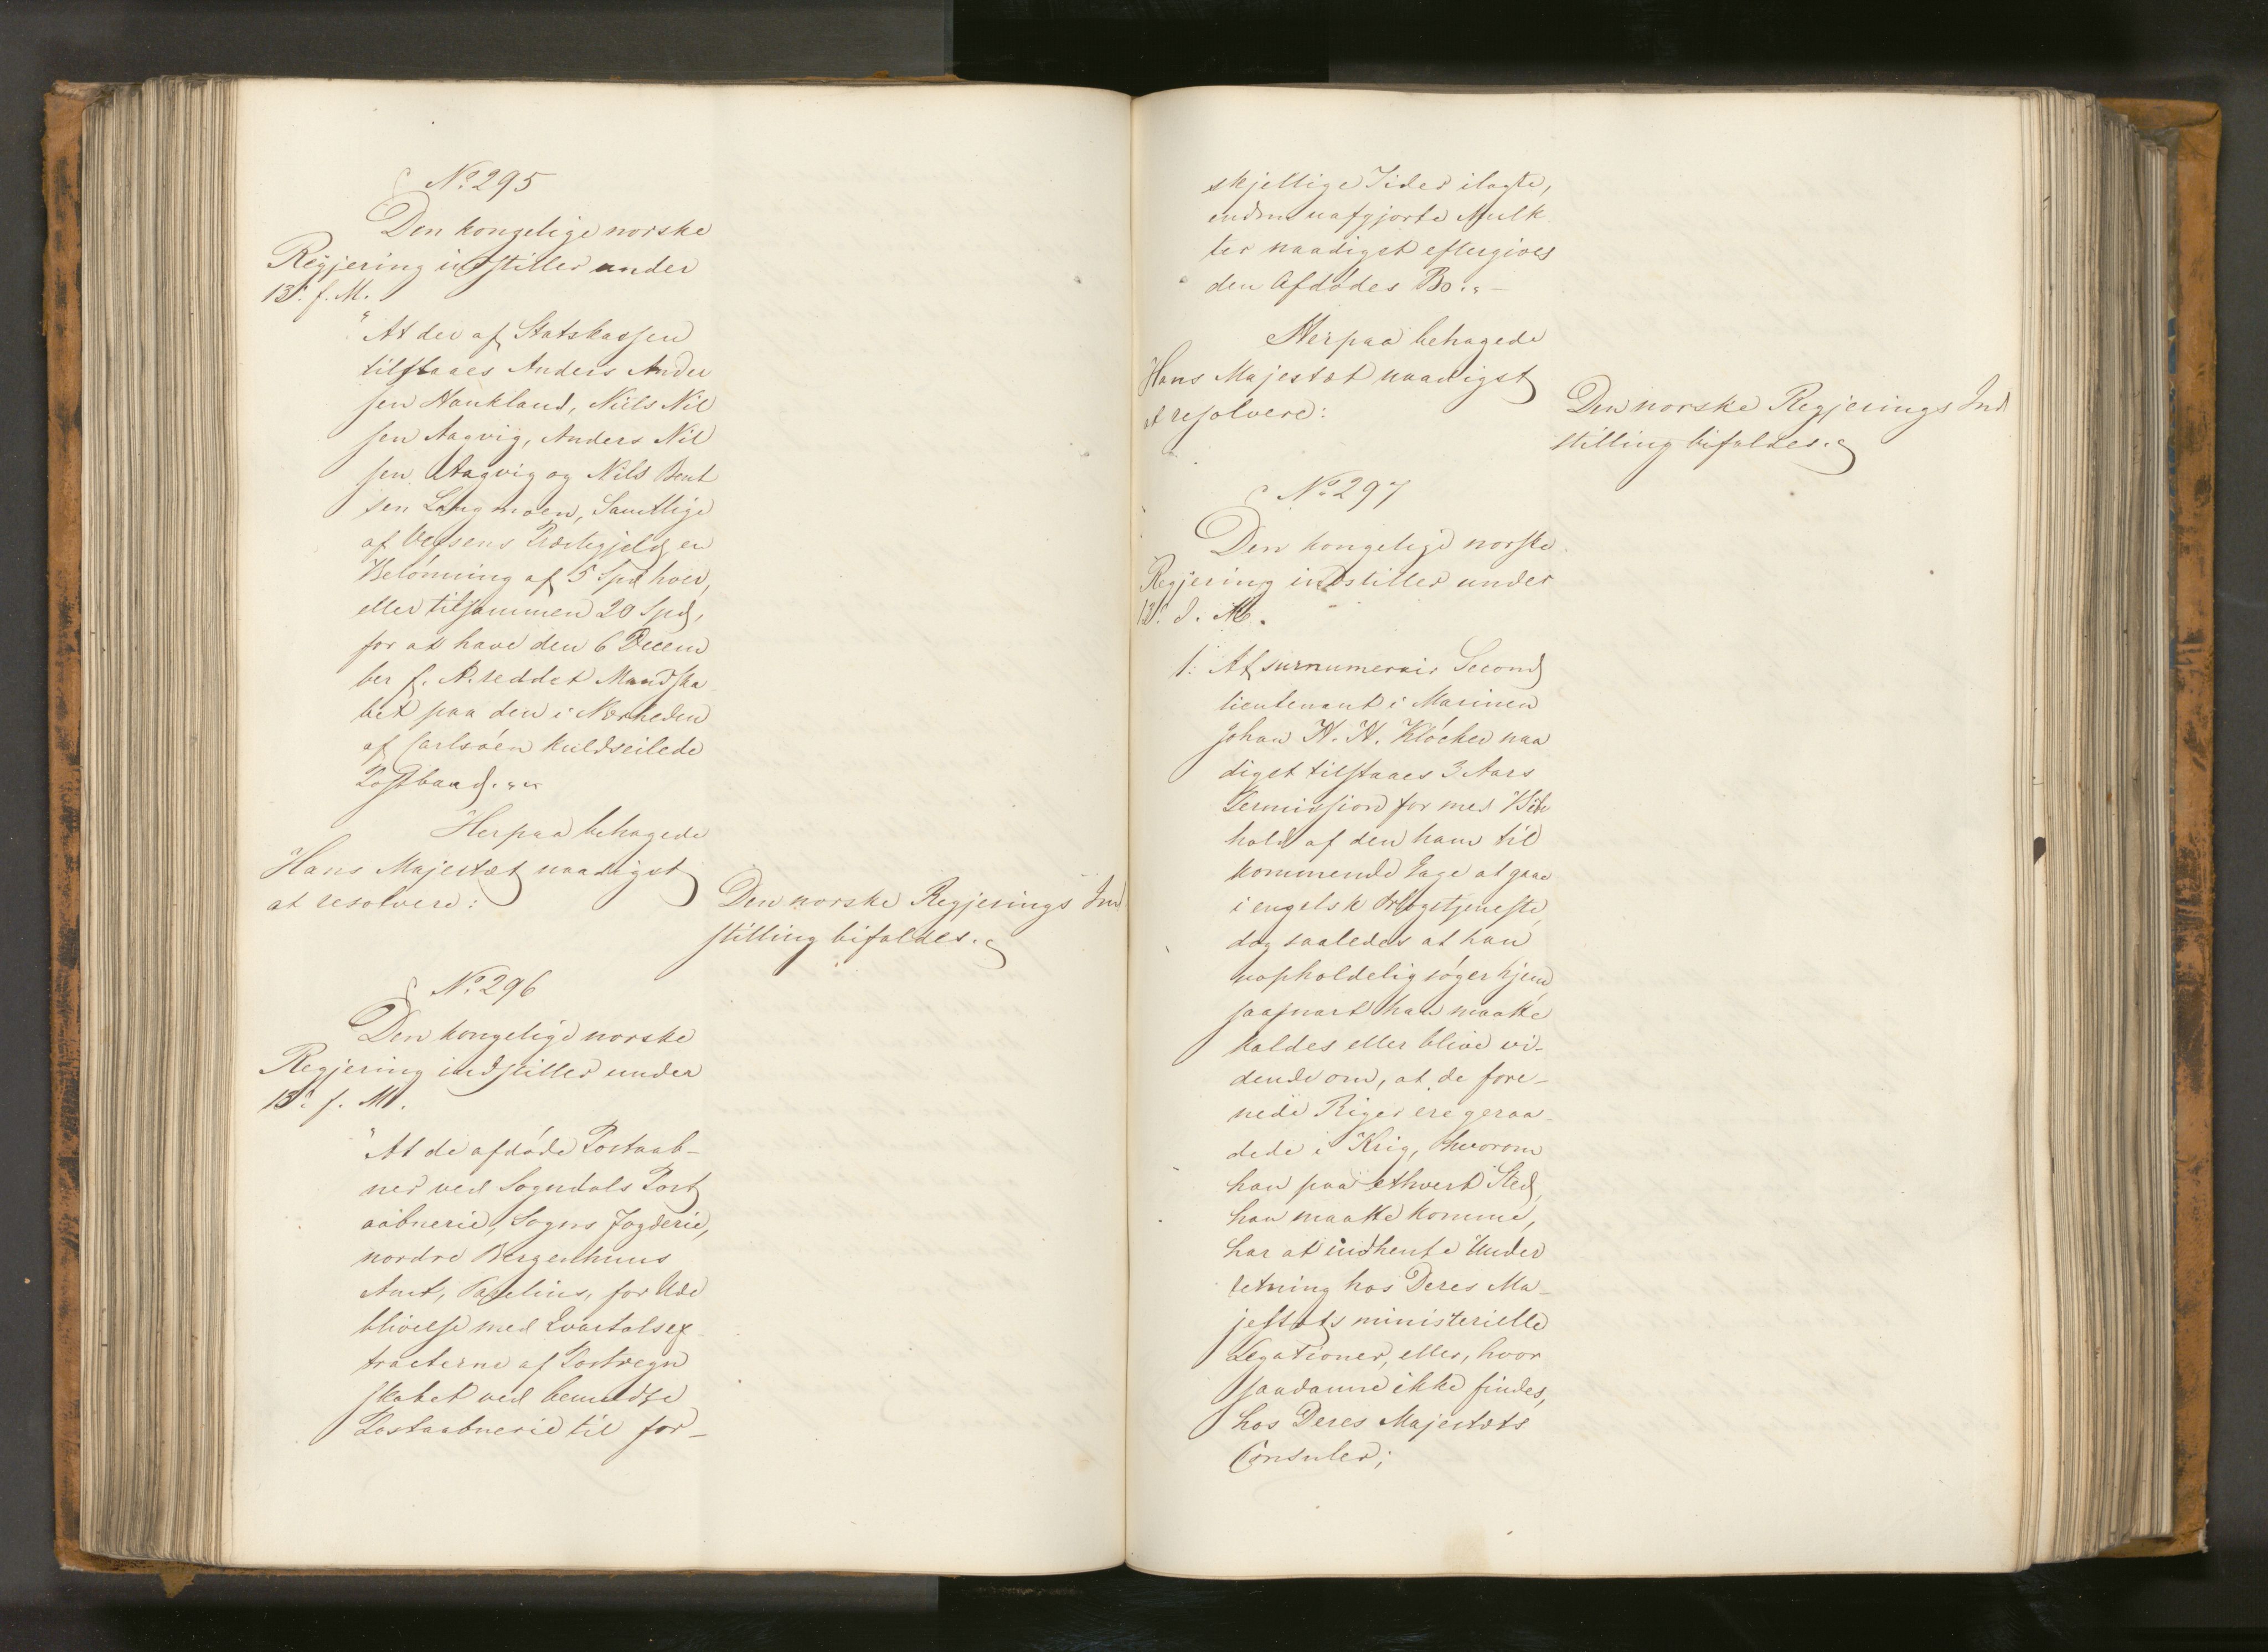 No. 295
Den kongelige norske
Regjering indstiller under
13de f. M.
"At der af Statskassen
tilstaaes Anders Ander
sen Haukland, Niels Nil
sen Aagvig, Anders Nil
sen Aagvig og Nils Bent
sen Langmoen, Samtlige
af Vefsens Præstegjeld, en
Belønning af 5 Spd hver,
eller tilsammen 20 Spd,
for at have den 6 Decem
ber f. A. reddet Mandska
bet paa den i Nærheden
af Carlsøen kuldseilede
Postbaad."
Herpaa behagede
Hans Majestæt naadigst
at resolvere:
Den norske Regjerings Ind
stilling bifaldes.
No. 296
Den kongelige norske
Regjering indstiller under
13de f. M.
"At de afdøde Postaab-
ner ved Sogndals Post
aabnerie, Sogns Fogderie,
nordre Bergenhuus
Amt, for Ude
blivelse med Qvartalsex
tracterne af Postregn
skabet ved bemeldte
Postaabnerie til for-
skjellige Tider ilagte,
endnu uafgjorte Mulk
ter naadigst eftergives
den Afdødes Bo."
Herpaa behagede
Hans Majestæt naadigst
at resolvere:
Den norske Regjerings Ind
stilling bifaldes.
No. 297
Den kongelige norske
Regjering indstiller under
13de d. M.
1. At surnumerair Second
lieutenant i Marinen
Johan H. H. Klöcker naa
digst tilstaaes 3 Aars
Permission for med Bibe
hold af den ham til
kommende Gage at gaae
i engelsk Krigstjeneste,
dog saaledes at han
uopholdelig søger hjem
saasnart han maatte
kaldes eller blive vi-
dende om, at de fore-
nede Riger ere geraa-
dede i Krig, hvorom
han paa ethvert Sted,
han maatte komme,
har at indhente Under
retning hos Deres Ma-
jestæts ministerielle
Legationer, eller, hvor
saadanne ikke findes,
hos Deres Majestæts
Consuler;